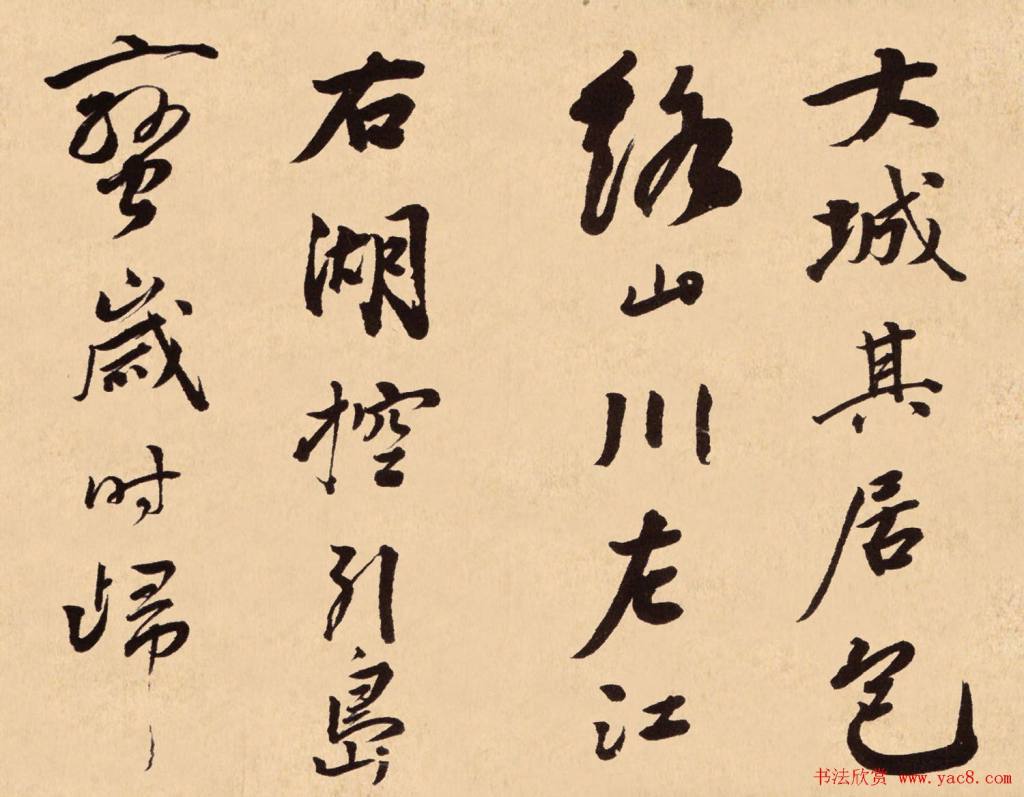 大城其居包
络山川左江
右湖控引島
蠻歲时歸
书法欣赏 www.yac8.com